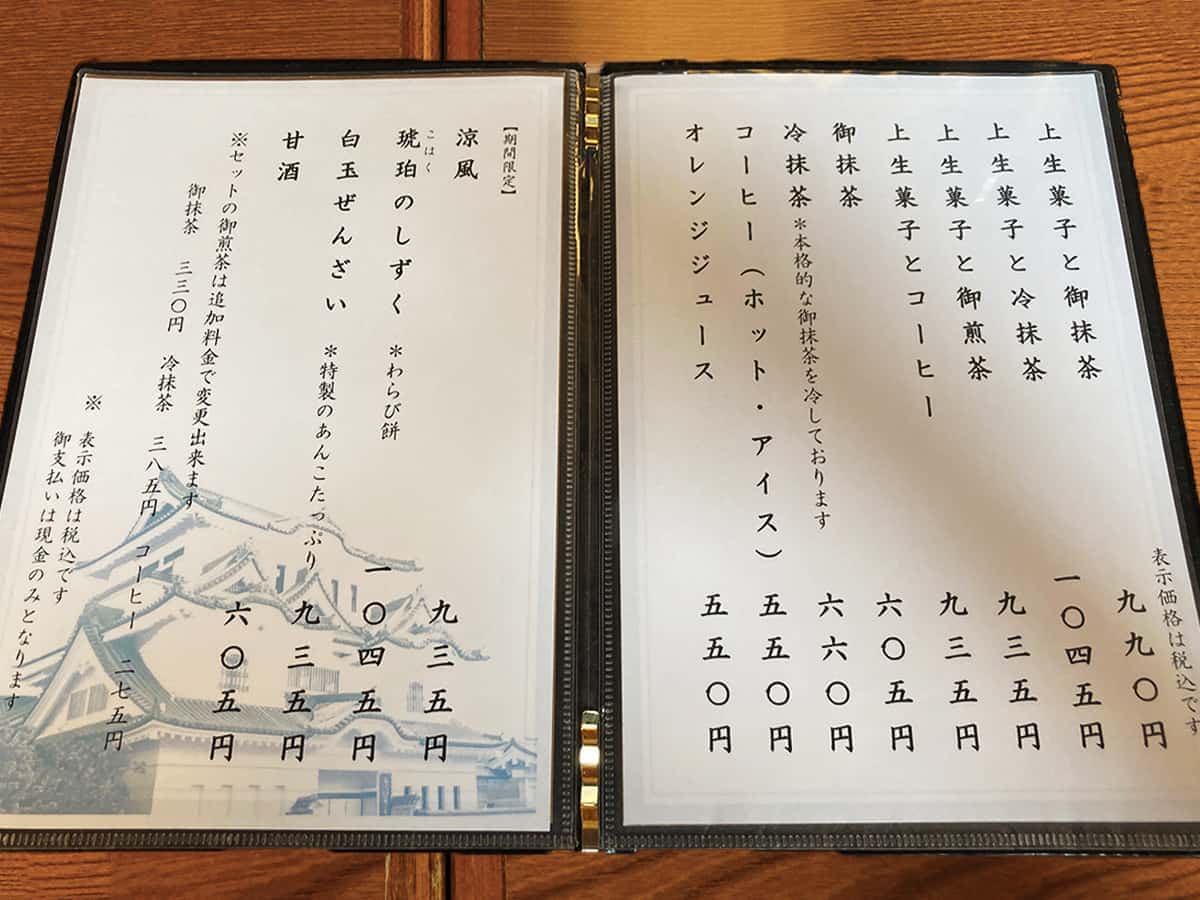 表示価格は税込です
上生菓子と御抹茶 九九〇円
上生菓子と冷抹茶 一〇四五円
上生菓子と御煎茶 九三五円
上生菓子とコーヒー 九三五円
御抹茶 六〇五円
冷抹茶 *本格的な御抹茶を冷しております 六六〇円
コーヒー(ホット・アイス) 五五〇円
オレンジジュース 五五〇円
【期間限定】
涼風 九三五円
こはく
琥珀のしずく *わらび餅 一〇四五円
白玉ぜんざい *特製のあんこたっぷり 九三五円
甘酒 六〇五円
※セットの御煎茶は追加料金で変更出来ます
御抹茶 三三〇円 冷抹茶 三八五円 コーヒー 二七五円
※ 表示価格は税込です
御支払いは現金のみとなります